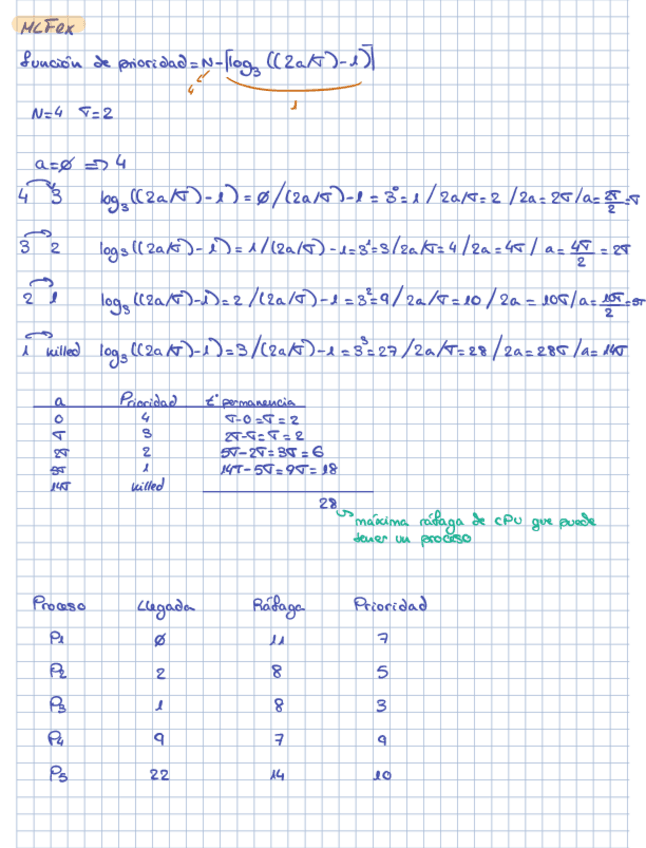 MLFex
función de prioridad = N-⌈log₃((2a/σ)-1)⌉
4
1
N=4 σ=2
a=∅ => 4
4 3 log₃((2a/σ)-1)=∅/(2a/σ)-1=3⁰=1/2a/σ=2/2a=2σ/a=2σ/2=σ
3 2 log₃((2a/σ)-1)=1/(2a/σ)-1=3¹=3/2a/σ=4/2a=4σ/a=4σ/2=2σ
2 1 log₃((2a/σ)-1)=2/(2a/σ)-1=3²=9/2a/σ=10/2a=10σ/a=10σ/2=5σ
1 killed log₃((2a/σ)-1)=3/(2a/σ)-1=3³=27/2a/σ=28/2a=28σ/a=14σ
a Prioridad tº permanencia
0 4 σ-0=σ=2
σ 3 2σ-σ=σ=2
2σ 2 5σ-2σ=3σ=6
5σ 1 14σ-5σ=9σ=18
14σ killed
28
máxima ráfaga de CPU que puede
tener un proceso
Proceso Llegada Ráfaga Prioridad
P1 ∅ 11 7
P2 2 8 5
P3 1 8 3
P4 9 7 9
P5 22 14 10